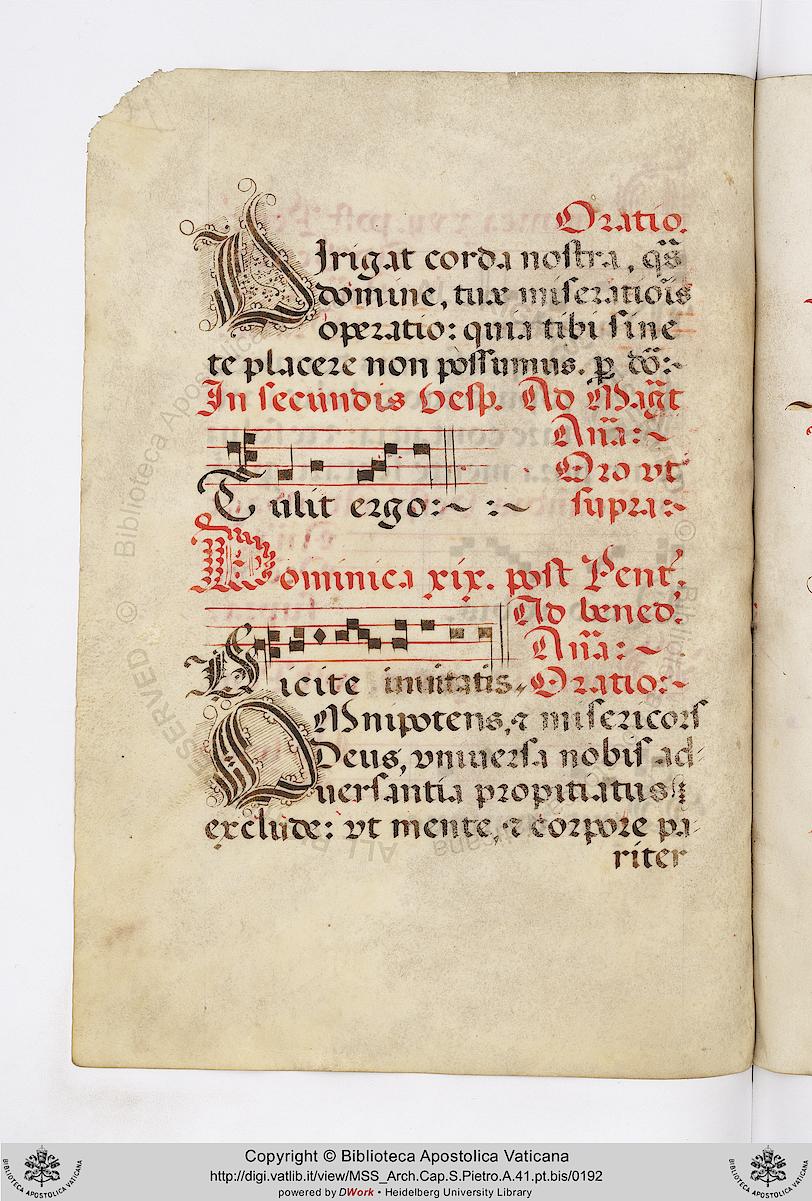 Oratio.
DIrigat corda nostra, qs̃
domine, tuæ miseratiõis
operatio: quia tibi sine
te placere non possumus. p dõ:~
In secundis Vesp. Ad Mag̃t
Aña:~
Oro vt
Tulit ergo:~ :~ supra:~
Dominica xix. post Pent.
Ad bened.
Aña:~
Dicite inuitatis. Oratio:~
OMnipotens, ⁊ misericors
Deus, vniuersa nobis ad-
uersantia propitiatus
exclude: vt mente, ⁊ corpore pa-
riter
Copyright © Biblioteca Apostolica Vaticana
http://digi.vatlib.it/view/MSS_Arch.Cap.S.Pietro.A.41.pt.bis/0192
powered by DWork • Heidelberg University Library